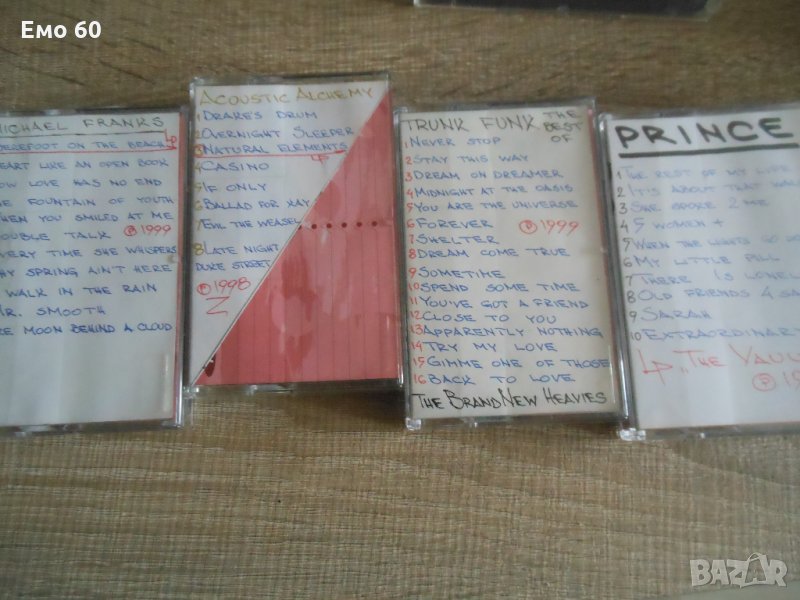 Емо 60
MICHAEL FRANKS
BEREFOOT ON THE BEACH LP
HEART LIKE AN OPEN BOOK
NOW LOVE HAS NO END
THE FOUNTAIN OF YOUTH
WHEN YOU SMILED AT ME
DOUBLE TALK Ⓟ 1999
EVERY TIME SHE WHISPERS
WHY SPRING AIN'T HERE
WALK IN THE RAIN
MR. SMOOTH
THE MOON BEHIND A CLOUD
ACOUSTIC ALCHEMY
1 DRAKE'S DRUM
2 OVERNIGHT SLEEPER
3 NATURAL ELEMENTS
LP
4 CASINO
5 IF ONLY
6 BALLAD FOR KAY
7 EVIL THE WEASEL
8 LATE NIGHT
DUKE STREET
Ⓟ 1998
Z
TRUNK FUNK THE BEST OF
1 NEVER STOP
2 STAY THIS WAY
3 DREAM ON DREAMER
4 MIDNIGHT AT THE OASIS
5 YOU ARE THE UNIVERSE
6 FOREVER Ⓟ 1999
7 SHELTER
8 DREAM COME TRUE
9 SOMETIME
10 SPEND SOME TIME
11 YOU'VE GOT A FRIEND
12 CLOSE TO YOU
13 APPARENTLY NOTHING
14 TRY MY LOVE
15 GIMME ONE OF THOSE
16 BACK TO LOVE
THE BRAND NEW HEAVIES
PRINCE
1 THE REST OF MY LIFE
2 IT'S ABOUT THAT WALK
3 SHE SPOKE 2 ME
4 5 WOMEN +
5 WHEN THE LIGHTS GO DO
6 MY LITTLE PILL
7 THERE IS LONEL
8 OLD FRIENDS 4 SA
9 SARAH
10 EXTRAORDINARY
LP „THE VAUL
Ⓟ 19
BAZAR